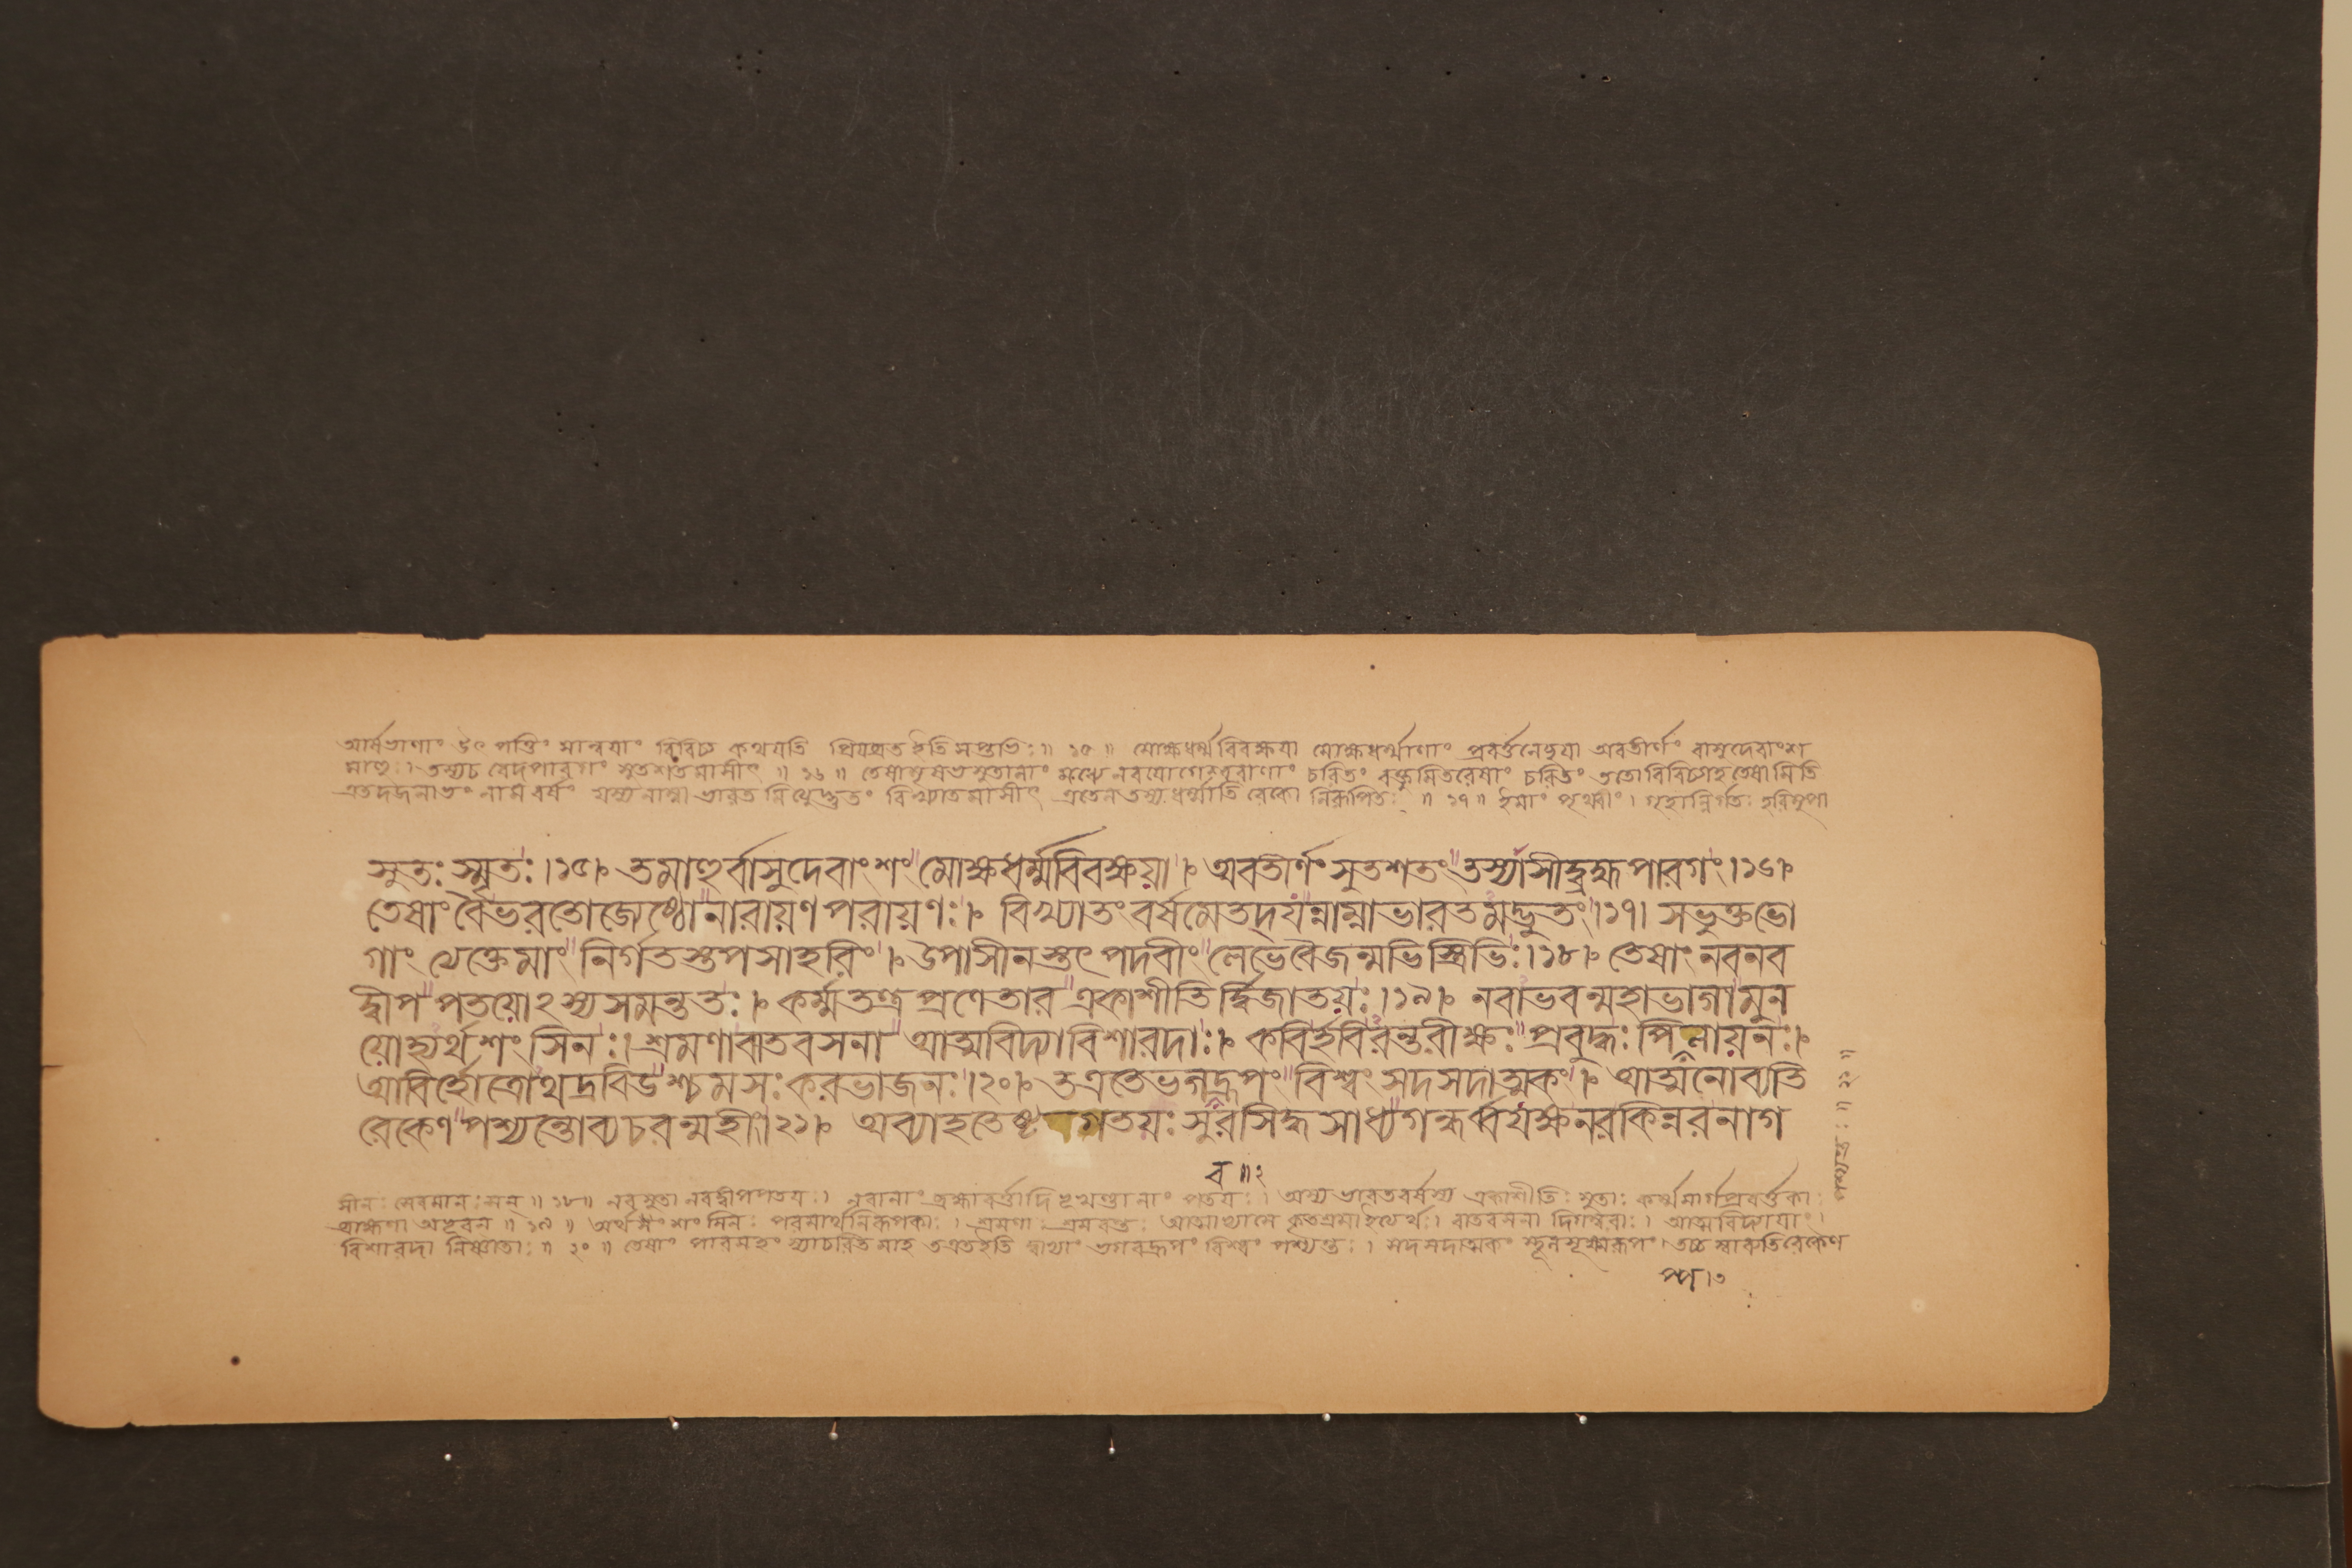 আর্ষভাণাং উৎপত্তিং সান্বয়াং বিবিচ্য কথযতি প্রিযব্রত ইতি সপ্তভিঃ ॥ ১৫ ॥ মোক্ষধর্ম্মবিবক্ষযা মোক্ষধর্ম্মাণাং প্রবর্ত্তনেচ্ছযা অবতীর্ণং বাসুদেবাংশ
মাহুঃ। তস্যচ বেদপারগং সুতশতমাসীৎ ॥ ১৬ ॥ তেষামৃষভসুতানাং মধ্যে নবযোগেশ্বরাণাং চরিতং বক্তুমিতরেষাং চরিতং ততো বিবিচ্যাহ তেষামিতি
এতদজনাভং নাম বর্ষং যস্য নাম্না ভারতমিত্যেদ্ভুতং বিখ্যাতমাসীৎ এতেন তস্য ধর্ম্মাতিরেকো নিরূপিতঃ ॥ ১৭ ॥ ইমাং পৃথ্বীং। গৃহান্নির্গতঃ হরিমুপা
সুতঃ স্মৃতঃ।১৫। তমাহুর্বাসুদেবাংশং মোক্ষধর্ম্মবিবক্ষয়া। অবতীর্ণং সুতশতং তস্যাসীদ্ব্রহ্মপারগং।১৬।
তেষাং বৈ ভরতো জ্যেষ্ঠো নারায়ণপরায়ণঃ। বিখ্যাতং বর্ষমেতদ্যন্নাম্না ভারতমদ্ভুতং।১৭। স ভুক্তভো
গাং ত্যেক্তেমাং নির্গতস্তপসা হরিং। উপাসীনস্তৎপদবীং লেভে বৈ জন্মভিস্ত্রিভিঃ।১৮। তেষাং নব নব
দ্বীপপতয়োঽস্য সমন্ততঃ। কর্ম্মতন্ত্রপ্রণেতার একাশীতির্দ্বিজাতয়ঃ।১৯। নবাভবন্মহাভাগা মুন
য়োহ্যর্থশংসিনঃ। শ্রমণা বাতবসনা আত্মবিদ্যাবিশারদাঃ। কবির্হবিরন্তরীক্ষঃ প্রবুদ্ধঃ পিপ্পলায়নঃ।
আবির্হোত্রোথ দ্রবিডশ্চমসঃ করভাজনঃ।২০। ত এতে ভগবদ্রূপং বিশ্বং সদসদাত্মকং। আত্মনো ব্যতি
রেকেণ পশ্যন্তো ব্যচরন্মহীং।২১। অব্যাহতেষ্টগতয়ঃ সুরসিদ্ধসাধ্যগন্ধর্ব্বযক্ষনরকিন্নরনাগ
ব ॥ ২
সীনঃ সেবমানঃ সন্ ॥ ১৮ ॥ নব সুতা নবদ্বীপপতযঃ। নবানাং ব্রহ্মাবর্ত্তাদি খণ্ডানাং পতযঃ। অস্য ভারতবর্ষস্য একাশীতিঃ সুতাঃ কর্ম্মমার্গপ্রবর্ত্তকাঃ
ব্রাহ্মণা অভবন্ ॥ ১৯ ॥ অর্থশংসিনঃ পরমার্থনিরূপকাঃ। শ্রমণাঃ শ্রমবন্তঃ আত্মাভ্যাসে কৃতশ্রমা ইত্যর্থঃ। বাতবসনা দিগম্বরাঃ। আত্মবিদ্যাযাং।
বিশারদা নিষ্ণাতাঃ ॥ ২০ ॥ তেষাং পারমহংস্যচরিতমাহ ত এত ইতি দ্বাভ্যাং ভগবদ্রূপং বিশ্বং পশ্যন্তঃ। সদসদাত্মকং স্থূলসূক্ষ্মরূপং। তচ্চ স্বাব্যতিরেকেণ
প্প।৩
পশ্যন্তঃ ॥ ২১ ॥